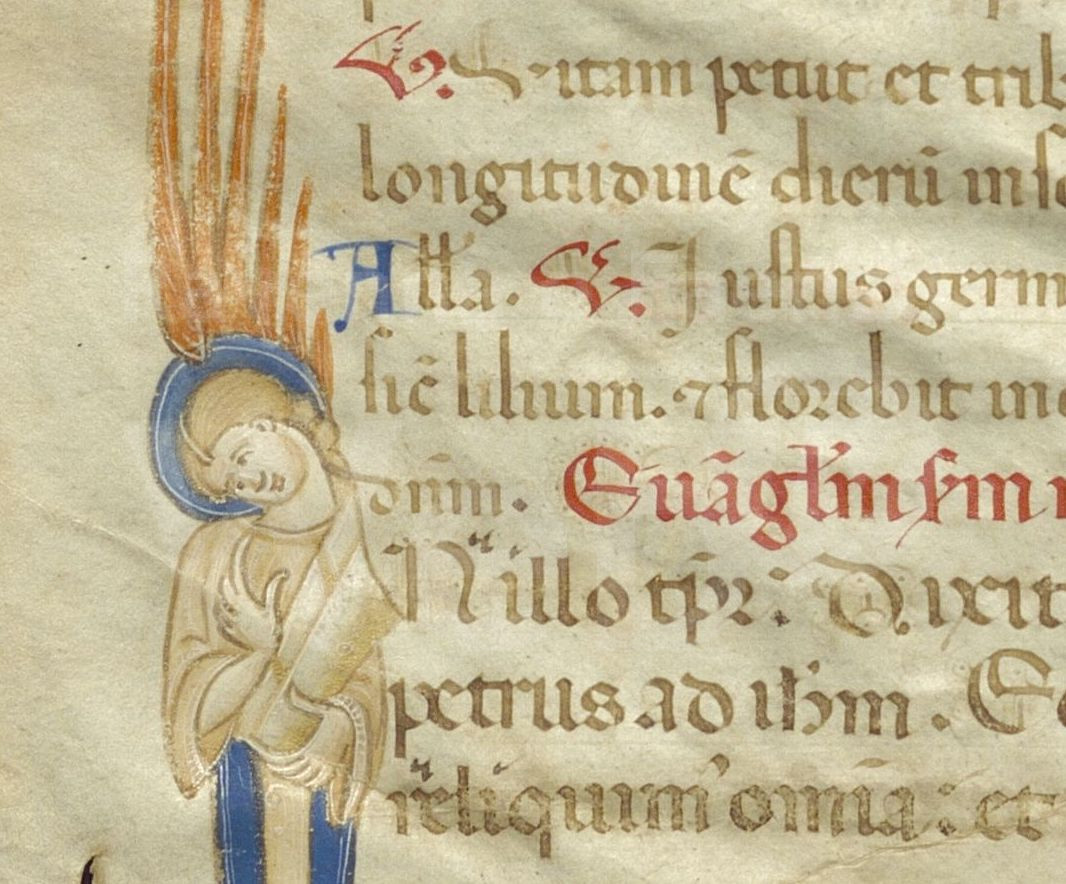 V. Vitam petiit et trib
longitudinē dierū in sc
Alla. V. Justus germ
sic̄ lilium. ⁊ florebit in e
dn̄m. Euāgl'm sꝫm
N illo tp̄r: Dixit
petrus ad ih̄m. Ec
reliquim' om̄ia: et